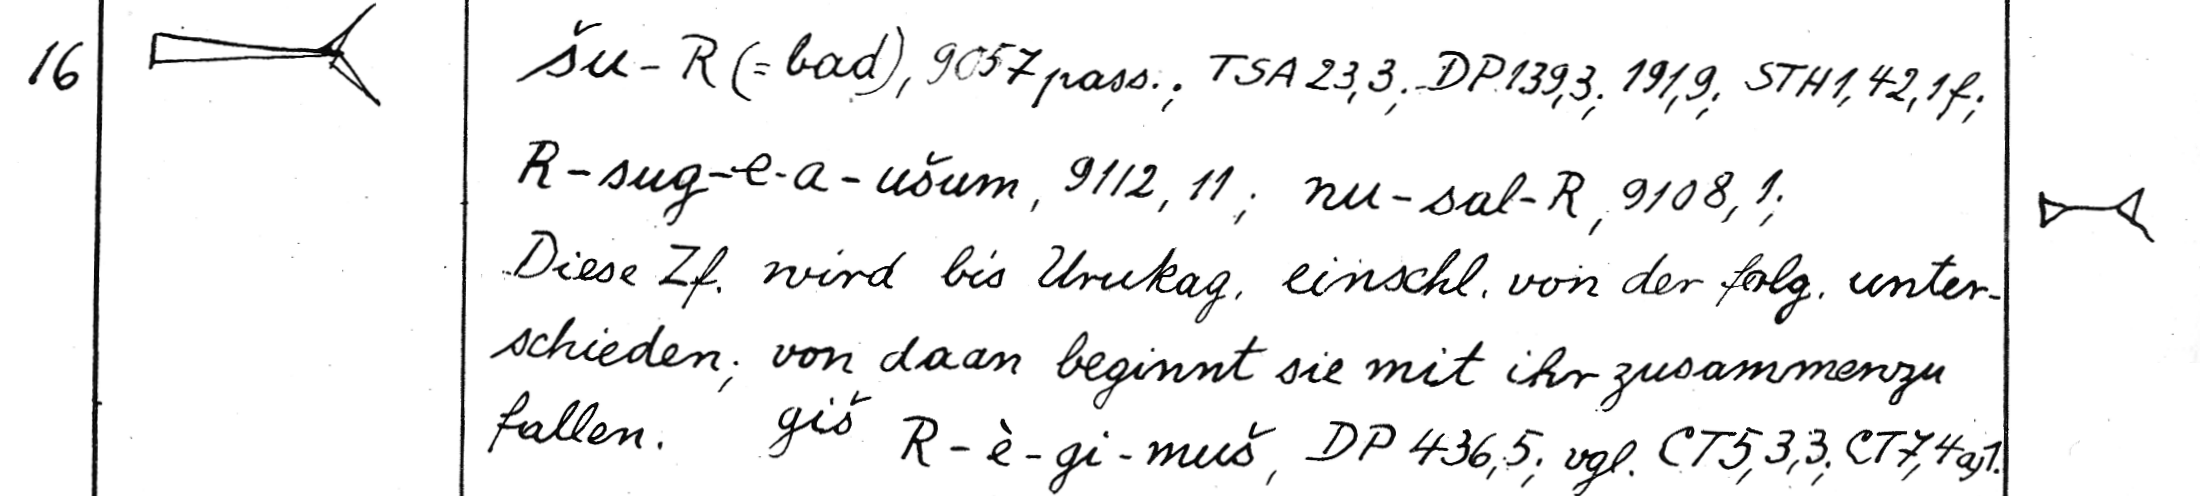 16 šu-R (=bad), 9057 pass.; TSA 23,3; DP 139,3; 191,9; STH 1,42,1f;
R-sug-e-a-ušum, 9112, 11; nu-sal-R, 9108, 1;
Diese Zf. wird bis Urukag. einschl. von der folg. unter-
schieden; von daan beginnt sie mit ihr zusammenzu
fallen. giš R-è-gi-muš, DP 436,5; vgl. CT5,3,3; CT7,4a,1.